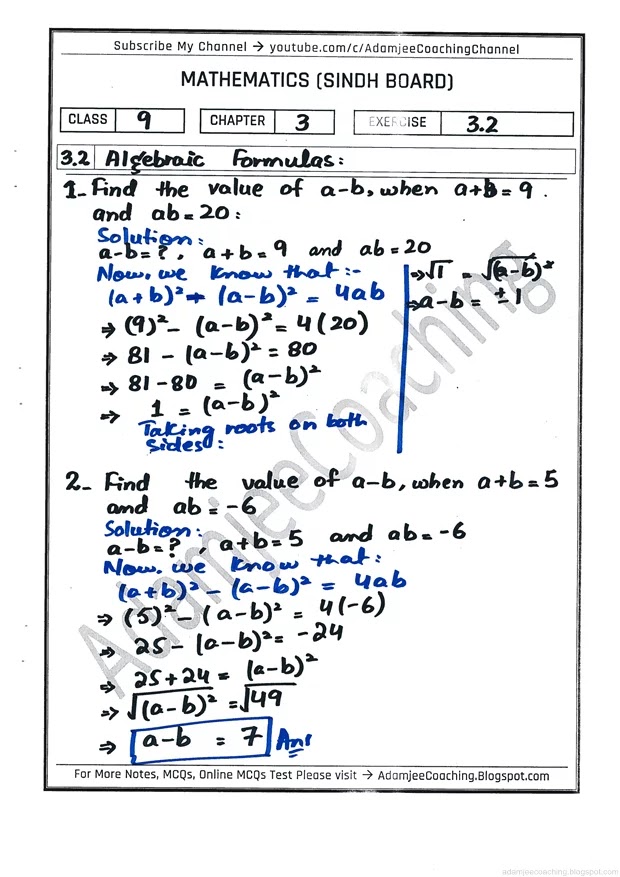 Subscribe My Channel → youtube.com/c/AdamjeeCoachingChannel
MATHEMATICS (SINDH BOARD)
CLASS 9 CHAPTER 3 EXERCISE 3.2
3.2 Algebraic Formulas:
1- Find the value of a-b, when a+b=9.
and ab=20:
Solution:
a-b=?, a+b=9 and ab=20
Now, we know that:-
(a+b)² - (a-b)² = 4ab
⇒ (9)² - (a-b)² = 4(20)
⇒ 81 - (a-b)² = 80
⇒ 81-80 = (a-b)²
⇒ 1 = (a-b)²
Taking roots on both
sides:
⇒ √1 = √(a-b)²
⇒ a-b = ±1
2- Find the value of a-b, when a+b=5
and ab=-6
Solution:
a-b=?, a+b=5 and ab=-6
Now, we know that:
(a+b)² - (a-b)² = 4ab
⇒ (5)² - (a-b)² = 4(-6)
⇒ 25 - (a-b)² = -24
⇒ 25+24 = (a-b)²
⇒ √(a-b)² = √49
⇒ a-b = 7 Ans
For More Notes, MCQs, Online MCQs Test Please visit → AdamjeeCoaching.Blogspot.com
AdamjeeCoaching
adamjeecoaching.blogspot.com